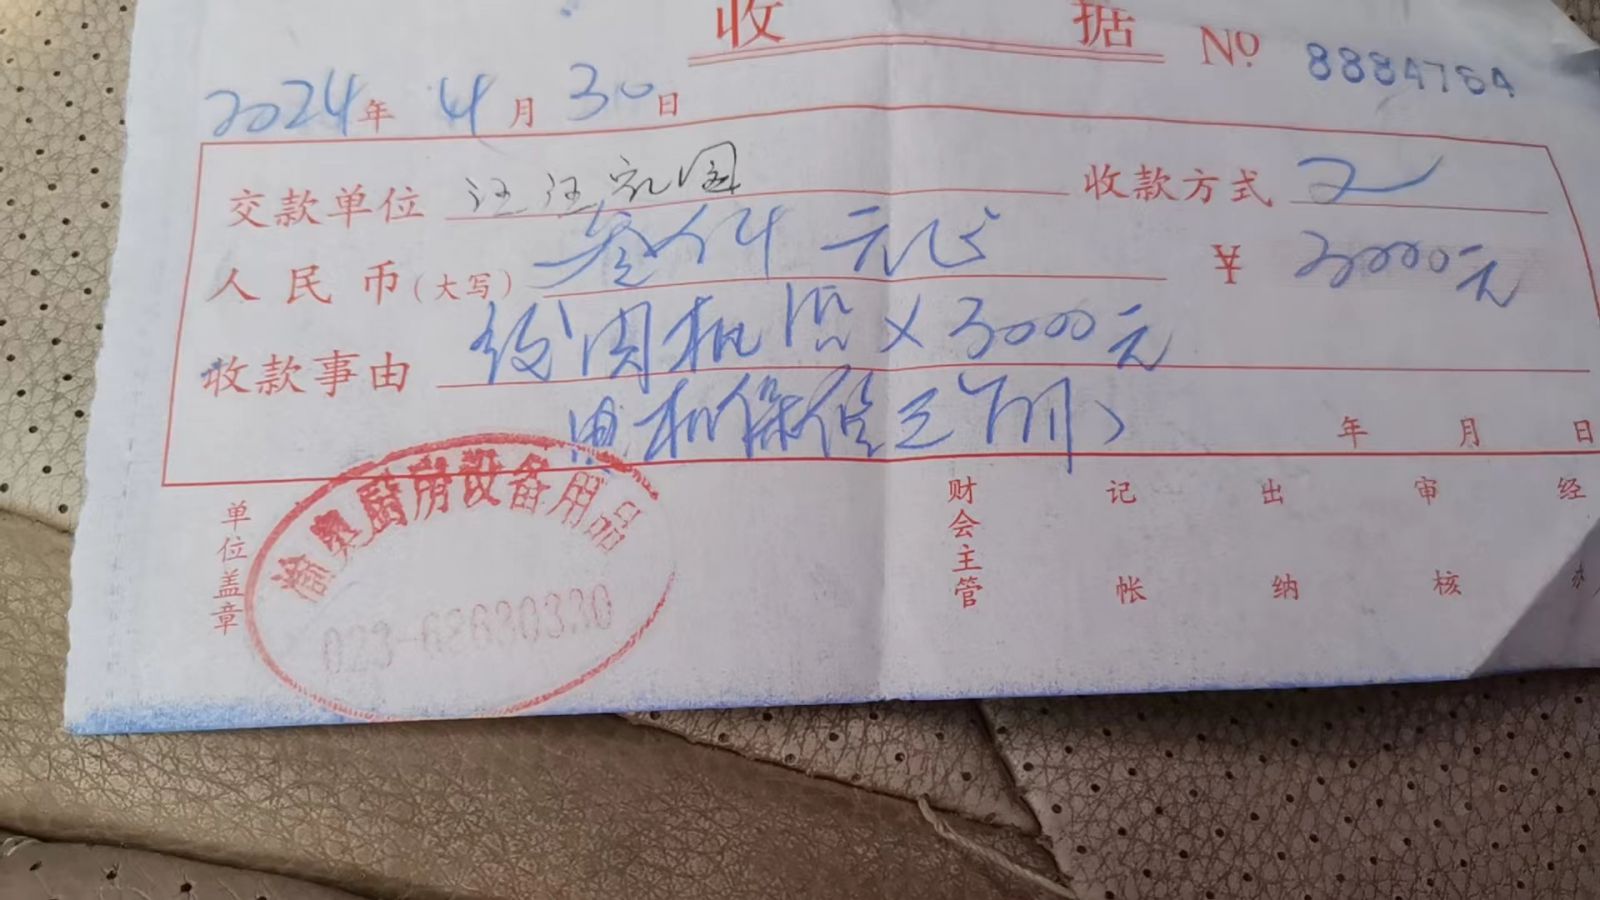 收 据 No 8884764
2024年 4月 30日
交款单位 汪汪乐园 收款方式
人民币(大写) 叁仟元正 ¥ 3000元
收款事由 绞肉机1台×3000元
电机保修三个月
年 月 日
单位盖章
渝奥厨房设备用品
023-68630330
财会主管 记帐 出纳 审核 经办